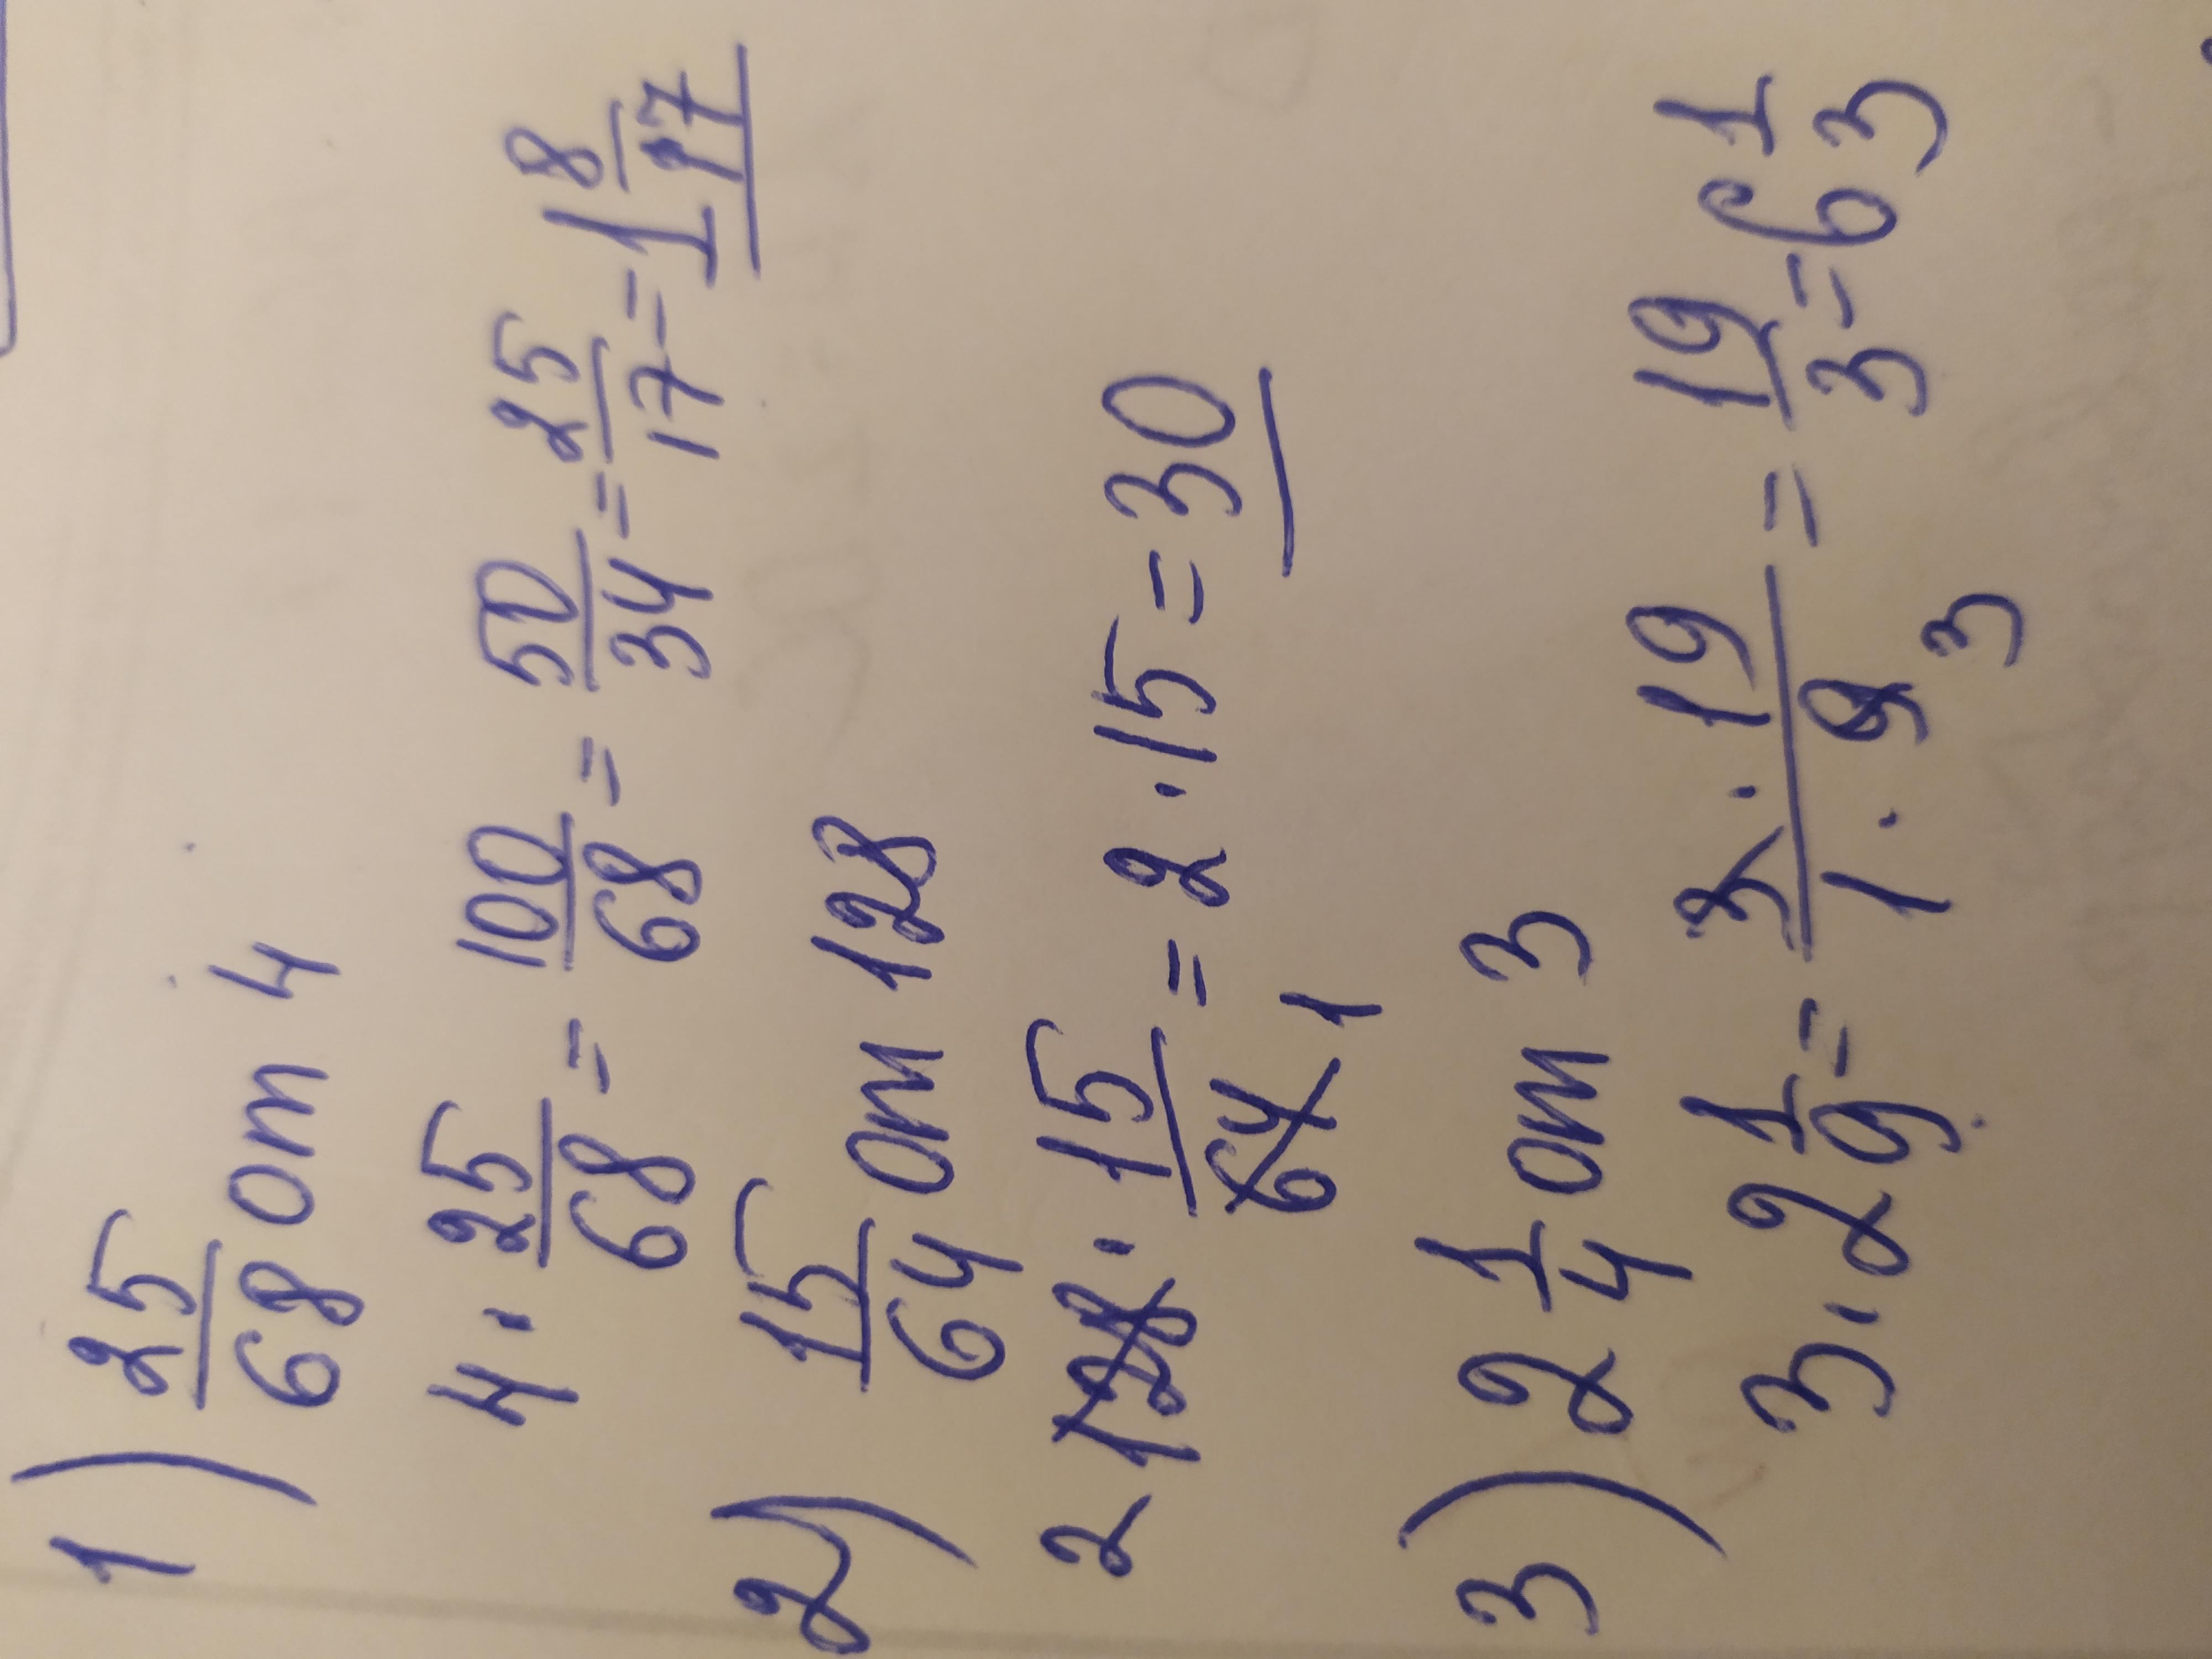 1) 25/68 от 4
4 · 25/68 = 100/68 = 50/34 = 25/17 = 1 8/17
2) 15/64 от 128
2 128 · 15/64 1 = 2 · 15 = 30
3) 2 1/4 от 3
3 · 2 1/9 = 3 · 19 / 1 · 9 3 = 19/3 = 6 1/3